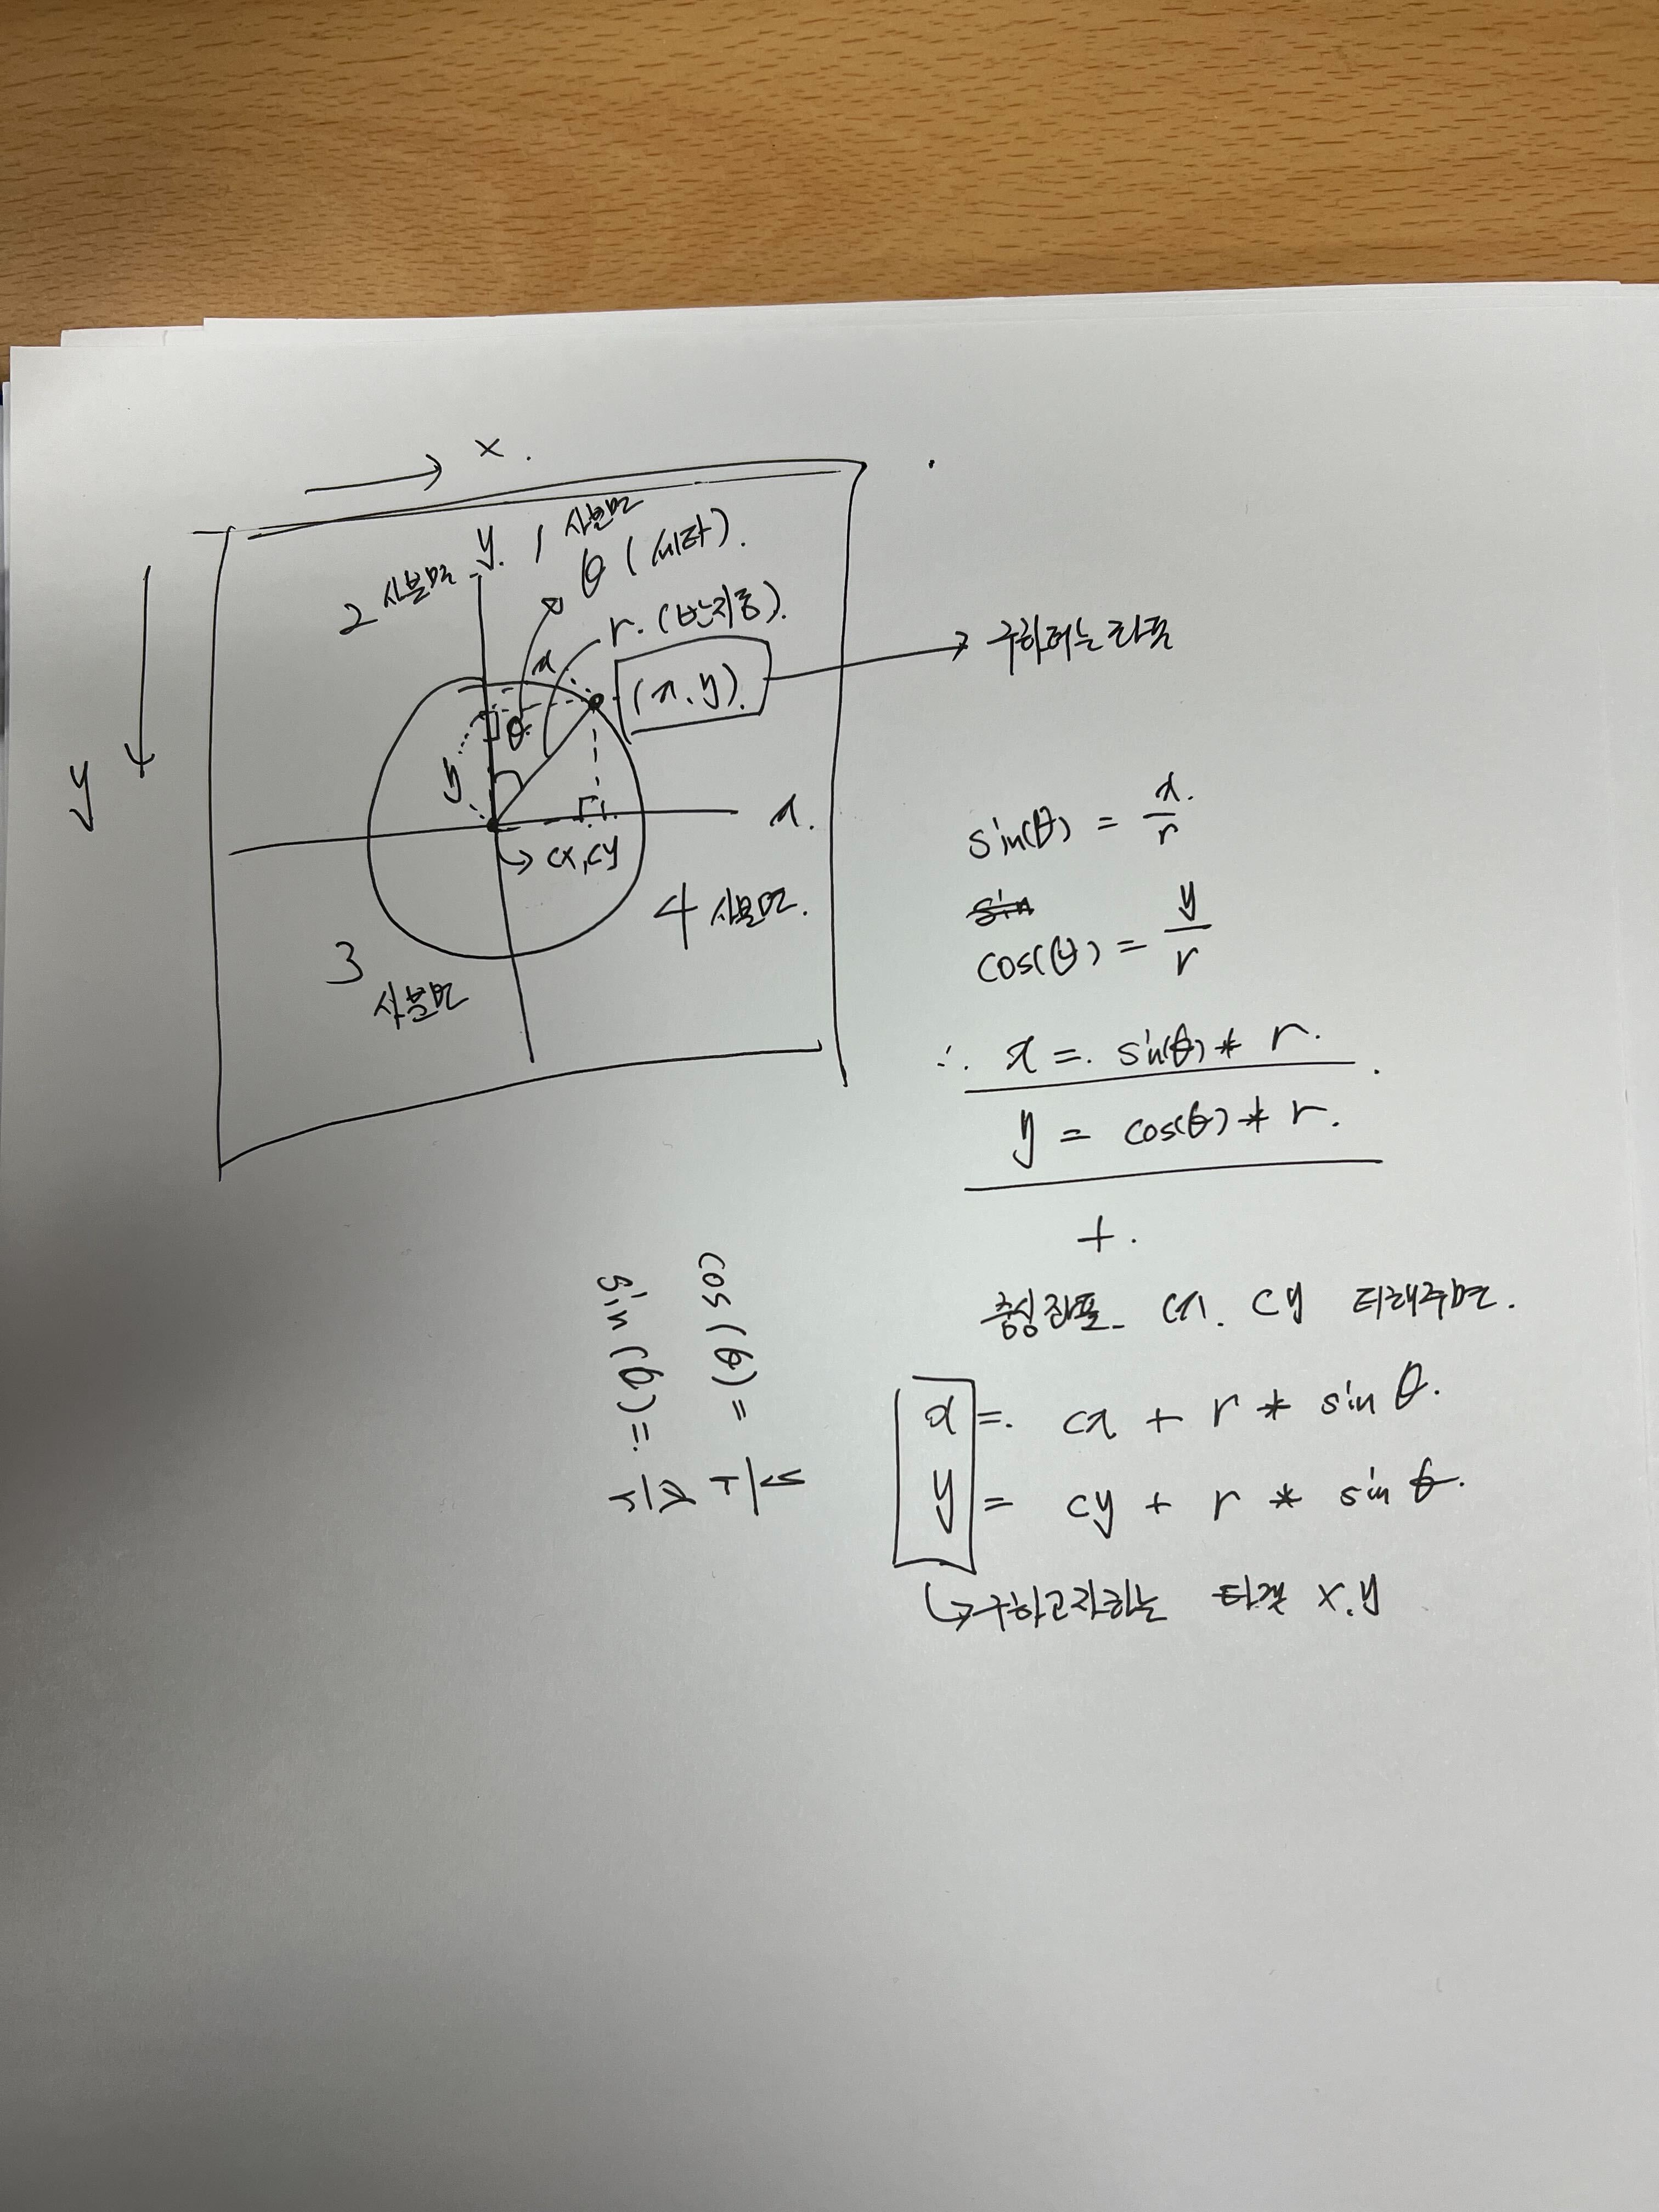 x.
y. 1 사분면
θ (세타).
2 사분면
r. (반지름).
x
(x, y). → 구하려는 좌표
θ
y
y
x.
→ cx, cy
4 사분면.
3
사분면
sin(θ) = x/r
sin
cos(θ) = y/r
∴ x = sin(θ) * r.
y = cos(θ) * r.
+.
중심 좌표 cx. cy 더해주면.
x = cx + r * sin θ.
y = cy + r * sin θ.
↳ 구하고자하는 타겟 x.y
cos(θ) = y/r
sin(θ) = x/r